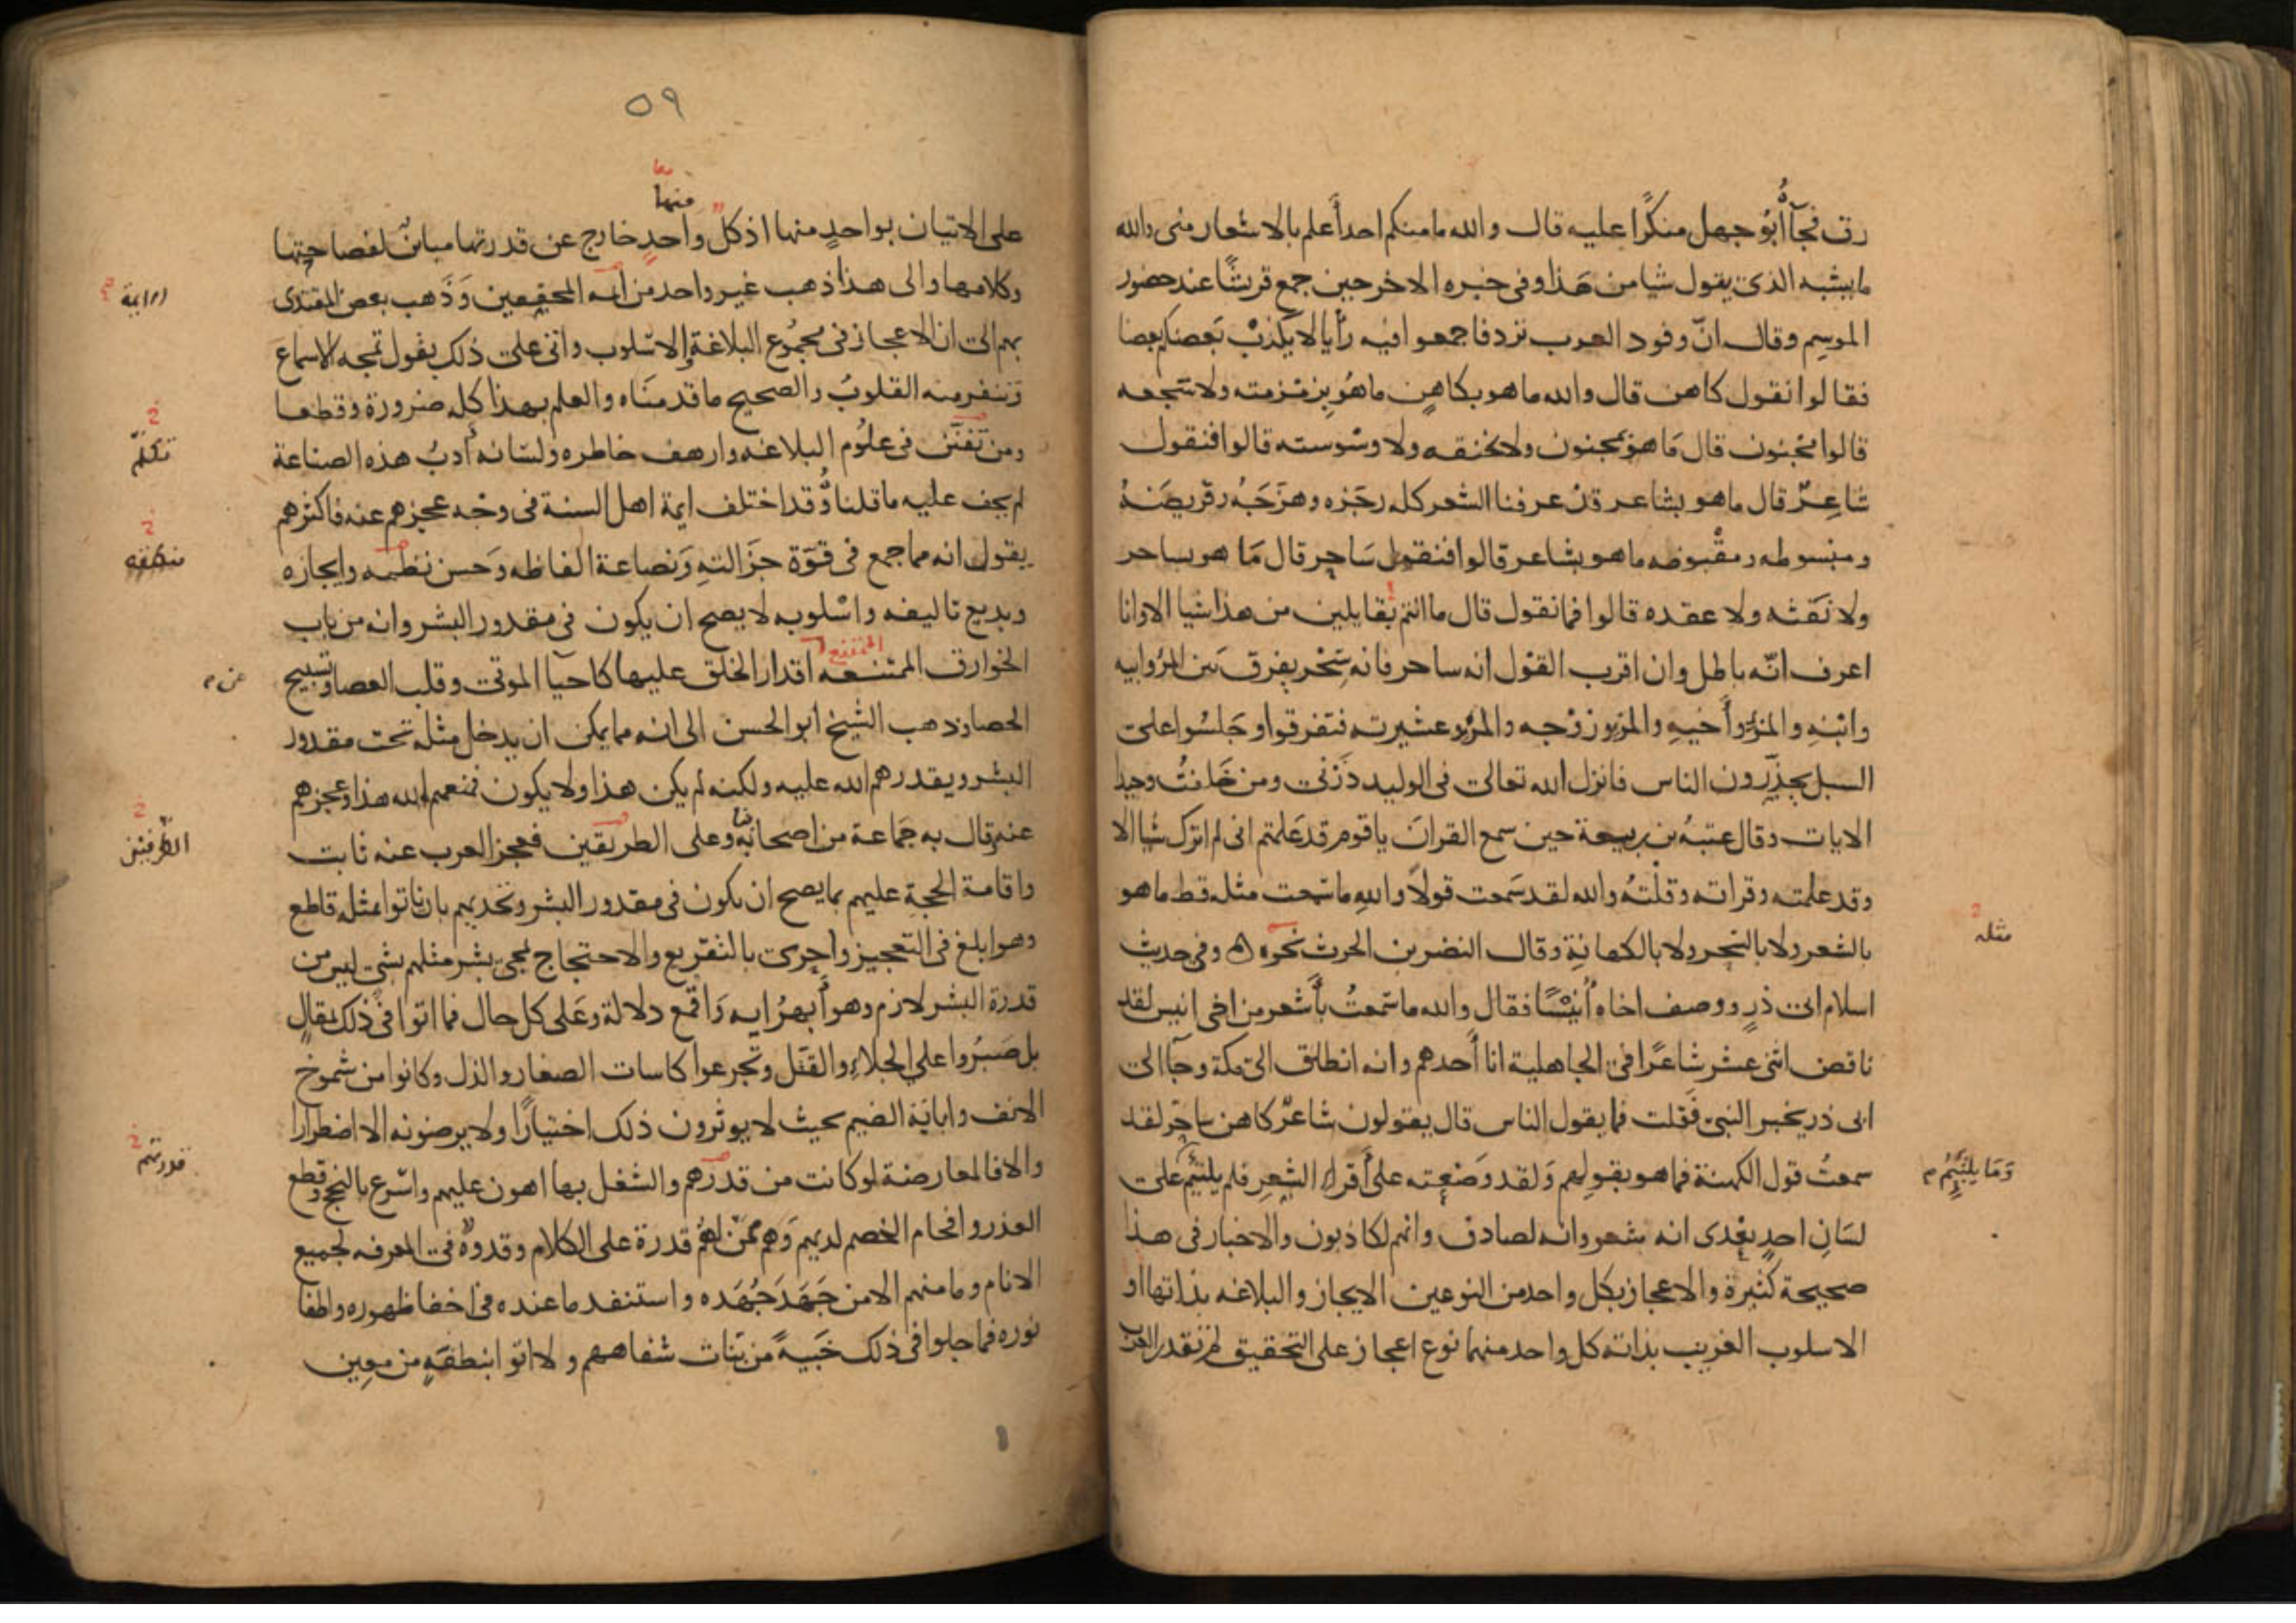 رق فجآءه أبو جهل منكرًا عليه قال والله ما منكم احد أعلم بالاشعار منى والله
ما يشبه الذى يقول شيا من هذا وفى خبره الاخر حين جمع قريشًا عند حضور
الموسم وقال انّ وفود العرب ترد فاجمعوا فيه رأيا لا يكذب بعضكم بعضا
فقالوا نقول كاهن قال والله ما هو بكاهن ما هو بزمزمته ولا سجعه
قالوا مجنون قال ما هو بمجنون ولا بخنقه ولا وسوسته قالوا فنقول
شاعرٌ قال ما هو بشاعر قد عرفنا الشعر كله رجزه وهزجه وقريضه
ومبسوطه ومقبوضه ما هو بشاعر قالوا فنقول ساحر قال ما هو بساحر
ولا نفثه ولا عقده قالوا فما نقول قال ما انتم بقايلين من هذا شيا الا وانا
اعرف انّه باطل وان اقرب القول انه ساحر فانه سحر يفرق بين المرؤ وابيه
وابنه والمرؤ وأخيه والمرؤ وزوجه والمرؤ وعشيرته فتفرقوا وجلسوا على
السبل يحذّرون الناس فانزل الله تعالى فى الوليد ذرنى ومن خلقتُ وحيدا
الايات وقال عتبه بن ربيعة حين سمع القران يا قوم قد علمتم انى لم اترك شيا الا
وقد علمته وقراته وقلته والله لقد سمعت قولاً والله ما سمعت مثله قط ما هو
بالشعر ولا بالسحر ولا بالكهانة وقال النضر بن الحرث نحوه وفى حديث
مثله
اسلام ابى ذر ووصف اخاه أنيسًا فقال والله ما سمعتُ بأشعر من اخى انيس لقد
ناقض اثنى عشر شاعرًا فى الجاهلية انا أحدهم وانه انطلق الى مكة وجآ الى
ابى ذر بخبر النبى فقلت فما يقول الناس قال يقولون شاعرٌ كاهن ساحر لقد
سمعتُ قول الكهنة فما هو بقولهم ولقد وضعته على أقراء الشعر فلم يلتئم على
وَمَا يلتئم م
لسان احدٍ بعدى انه شعر وانه لصادق وانهم لكاذبون والاخبار فى هذا
صحيحة كثيرة والاعجاز بكل واحد من النوعين الايجاز والبلاغه بذاتها او
الاسلوب الغريب بذاته كل واحد منهما نوع اعجاز على التحقيق لم تقدر العرب
٥٩
منهما
على الاتيان بواحدٍ منها اذ كلّ واحدٍ خارج عن قدرتها مباينٌ لفصاحتها
وكلامها والى هذا ذهب غير واحد من أئمه المحققين وذَهب بعض المقتدى
ايمة
بهم الى ان الاعجاز فى مجموع البلاغة والاسلوب واتى على ذلك بقول تمجه الاسماع
وتنفر منه القلوب والصحيح ما قدمناه والعلم بهذا كله ضرورة وقطعا
ومن تفنّن فى علوم البلاغه وارهف خاطره ولسانه أدبُ هذه الصناعة
لم يخف عليه ما قلناه وقد اختلف ايمة اهل السنة فى وجه عجزهم عنه فاكثرهم
يقول انه مما جمع فى قوّة جزالته ونصاعة الفاظه وحسن نظمه وايجازه
وبديع تاليفه واسلوبه لا يصح ان يكون فى مقدور البشر وانه من باب
الممتنع
الخوارق الممتنعه اقدار الخلق عليها كاحيا الموتى وقلب العصا وتسبيح
عن م
الحصا وذهب الشيخ أبو الحسن الى انه مما يمكن ان يدخل مثله تحت مقدور
البشر ويقدرهم الله عليه ولكنه لم يكن هذا ولا يكون فمنعهم الله هذا وعجزهم
عنه وقال به جماعة من اصحابه وعلى الطريقين فعجز العرب عنه ثابت
الطريقين
واقامة الحجة عليهم بما يصح ان يكون فى مقدور البشر وتحديهم بان ياتوا بمثله قاطع
وهو ابلغ فى التعجيز واحرى بالتقريع والاحتجاج بمجى بشر مثلهم بشىٍ ليس من
قدرة البشر لازم وهو أبهرُ ايه واقمع دلالة وعلى كل حال فما اتوا فى ذلك بمقالٍ
بل صبروا على الجلاءِ والقتل وتجرعوا كاسات الصغار والذل وكانوا من شموخ
الانف وابايَة الضيم بحيث لا يوثرون ذلك اختيارًا ولا يرضونه الا اضطرارا
والا فالمعارضة لو كانت من قدرهم والشغل بها اهون عليهم واسرع بالنجح وقطع
قدرتهم
العذر وافحام الخصم لديهم وهم ممّن لهم قدرة على الكلام وقدوةٌ فى المعرفه لجميع
الانام وما منهم الا من جَهَدَ جُهَده واستنفد ما عنده فى اخفا ظهوره واطفا
نوره فما جلوا فى ذلك خَبيةً من بَنات شفاههم ولا اتوا بنطفةٍ من معين